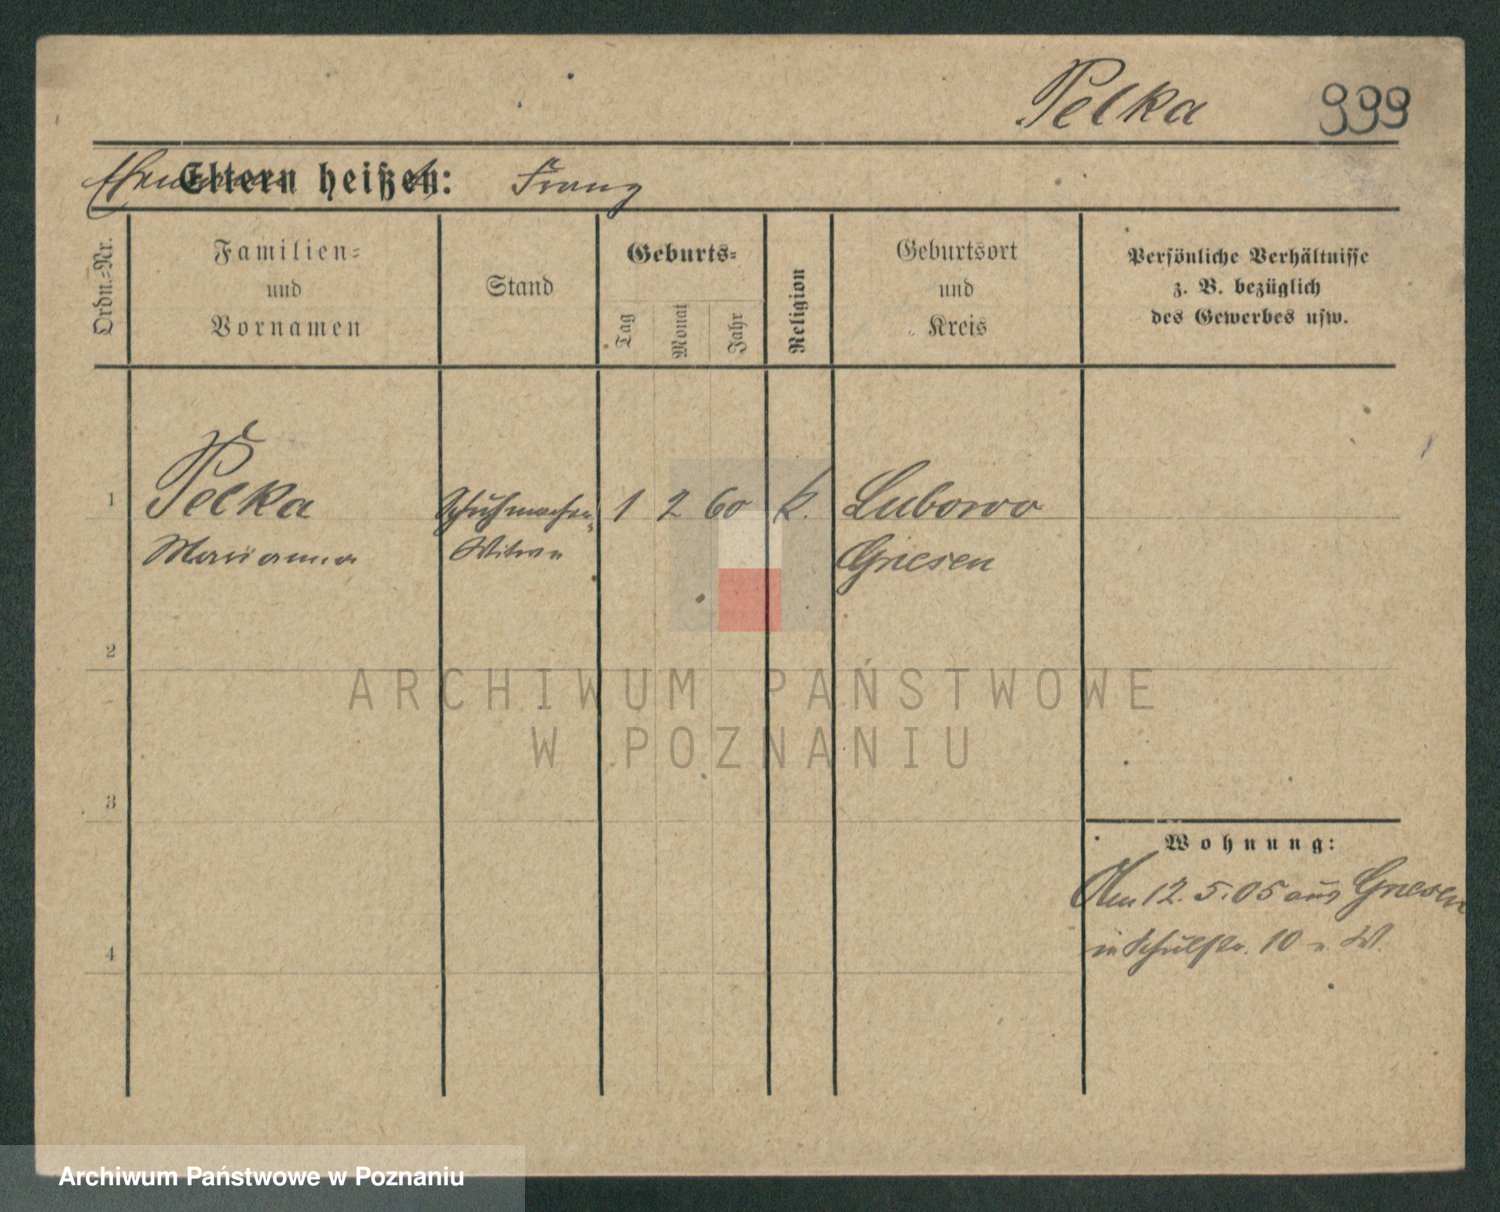 Pelka 999
Eltern heißen: Franz
Ordn.-Nr.
Familien-
und
Vornamen
Stand
Geburts-
Tag
Monat
Jahr
Religion
Geburtsort
und
Kreis
Persönliche Verhältnisse
z. B. bezüglich
des Gewerbes usw.
1 Pelka Schuhmacher- 1 2 60 k. Lubowo
Marianna Witwe Gnesen
2
ARCHIWUM PAŃSTWOWE
W POZNANIU
3
Wohnung:
Am 12. 5. 05 aus Gnesen
4
in Schulstr. 10 v. W.
Archiwum Państwowe w Poznaniu